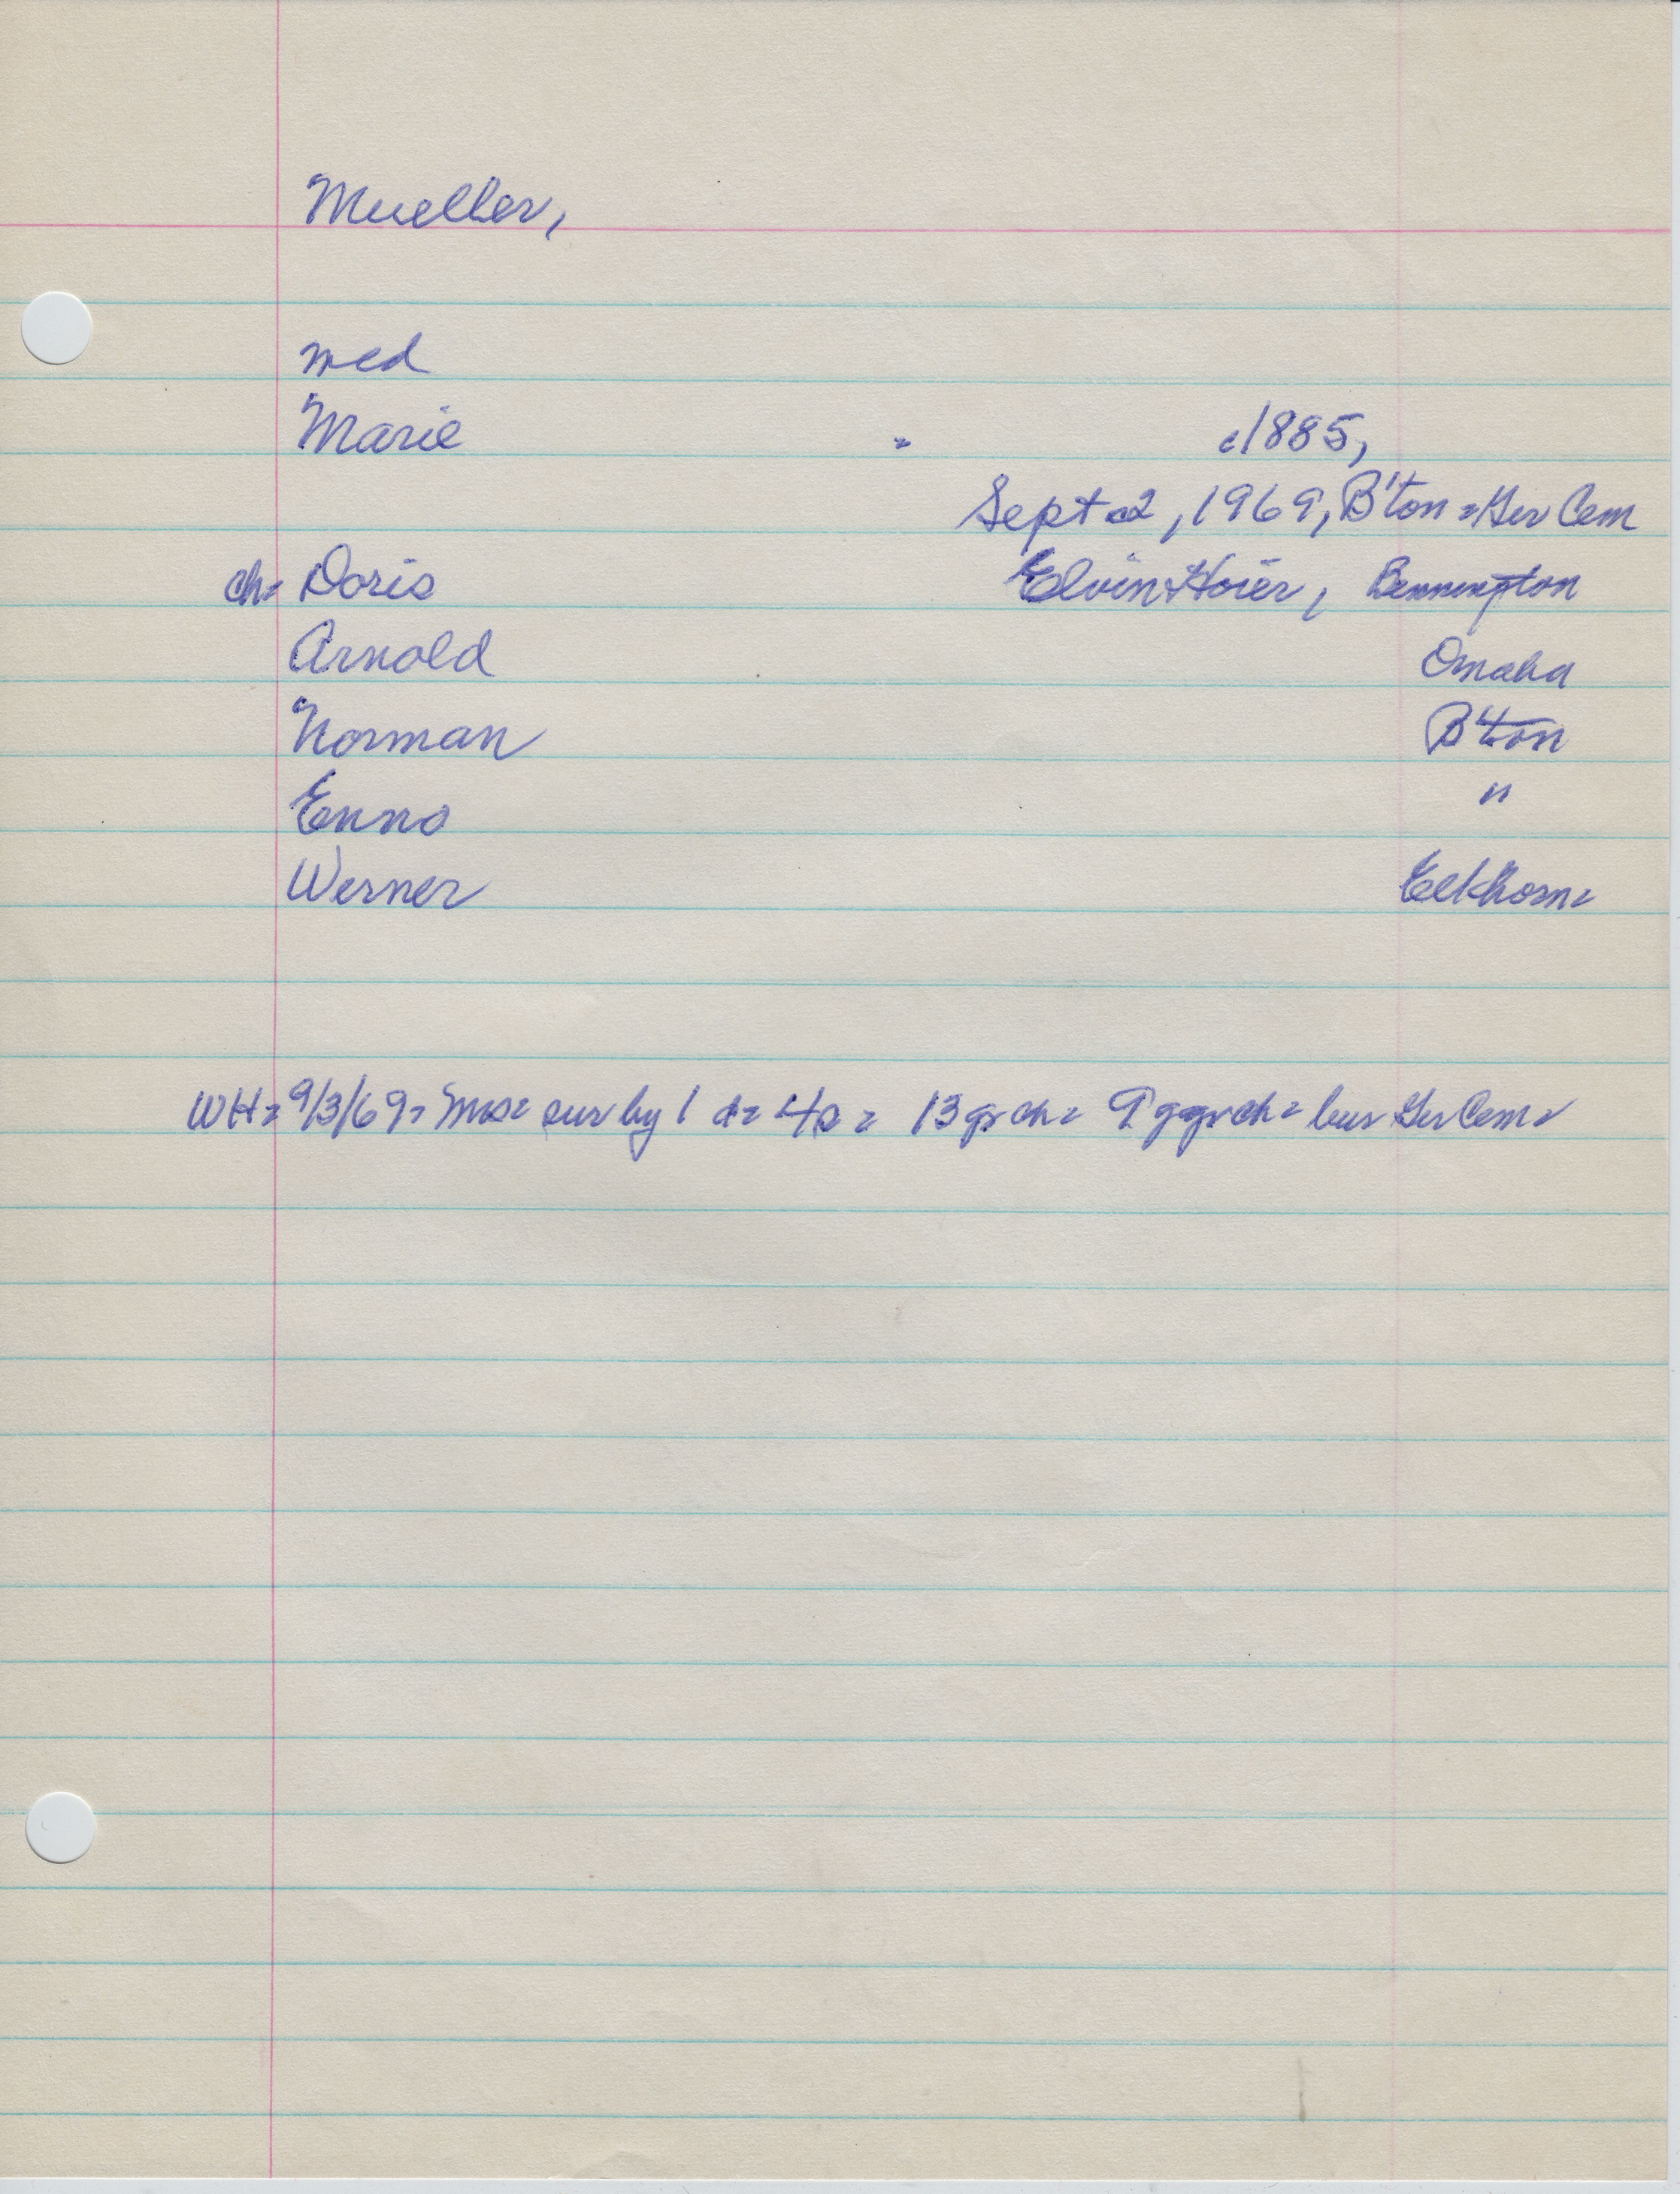 Mueller,
med
Marie = c1885,
Sept 2, 1969, B'ton = Ger Cem
ch= Doris Elvin Hoier, Bennington
Arnold Omaha
Norman B'ton
Enno "
Werner Elkhorn=
WH= 9/3/69= Mrs= sur by 1 d= 4s = 13 gr ch= 9 ggr ch= bur Ger Cem=